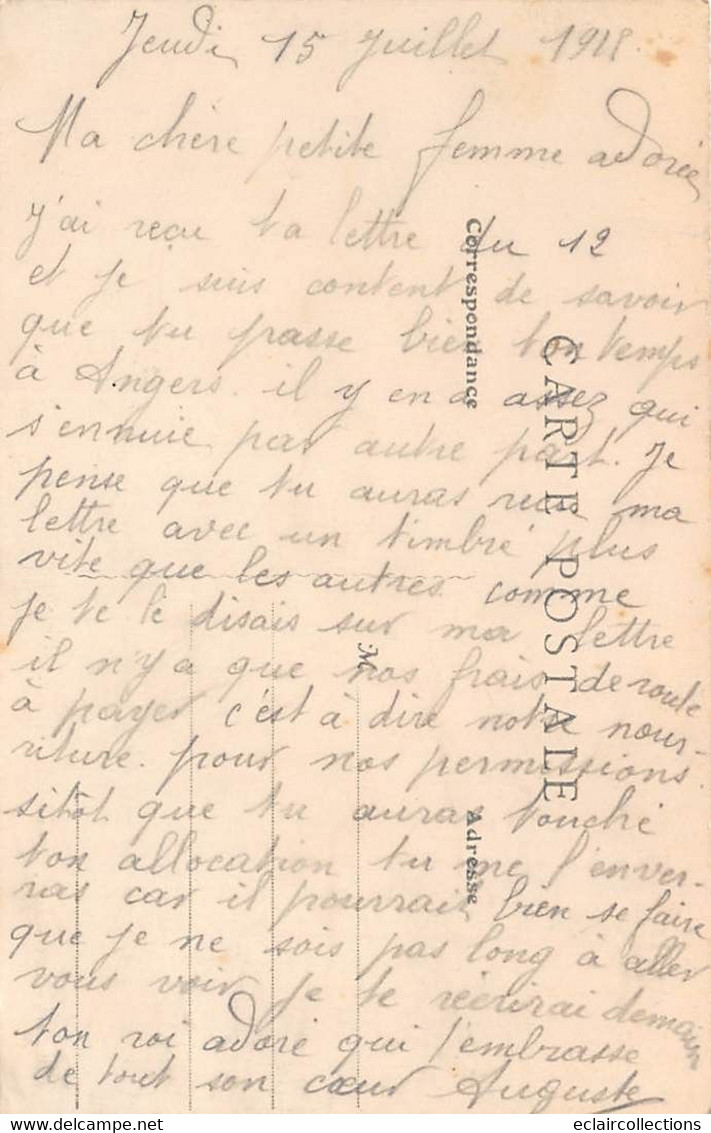 Jeudi 15 Juillet 1915
Ma chère petite femme adorée
J'ai reçu ta lettre du 12
et je suis content de savoir
que tu passe bien ton temps
à Angers. il y en a assez qui
s'ennuie par autre part. Je
pense que tu auras reçu ma
lettre avec un timbré plus
vite que les autres comme
je te le disais sur ma lettre
il n'y a que nos frais de route
à payer c'est à dire notre nour-
riture. pour nos permissions.
sitôt que tu auras touché
ton allocation tu me l'enver-
ras car il pourrait bien se faire
que je ne sois pas long à aller
vous voir je te récrirai demain
ton roi adoré qui t'embrasse
de tout son cœur Auguste
CARTE POSTALE
Correspondance
Adresse
M
eclaircollections